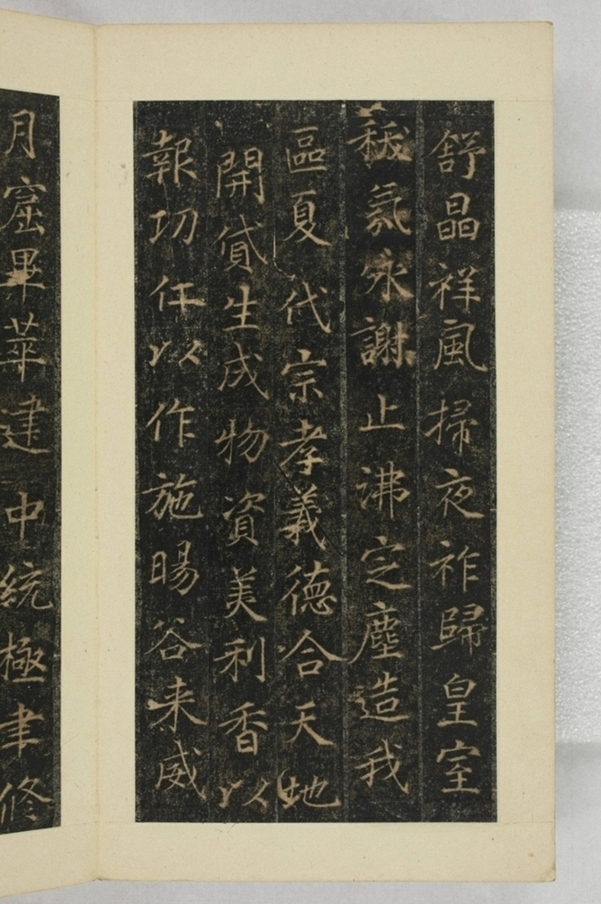 舒晶祥風掃夜祚歸皇室
氛永謝止沸定塵造我
區夏代宗孝義德合天地
開貸生成物資美利香以
報功任以作施暘谷来威
月窟畢萃建中統極聿修